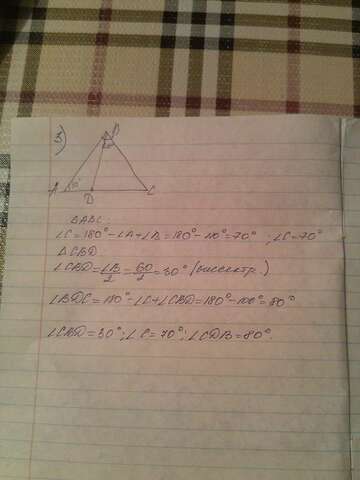 3)
B
A 50° D C
ΔABC:
∠C=180°-∠A+∠B=180°-110°=70° ; ∠C=70°
ΔCBD
∠CBD=∠B/2=60/2=30° (биссектр.)
∠BDC=180°-∠C+∠CBD=180°-100°=80°
∠CBD=30°; ∠C=70°; ∠CDB=80°.